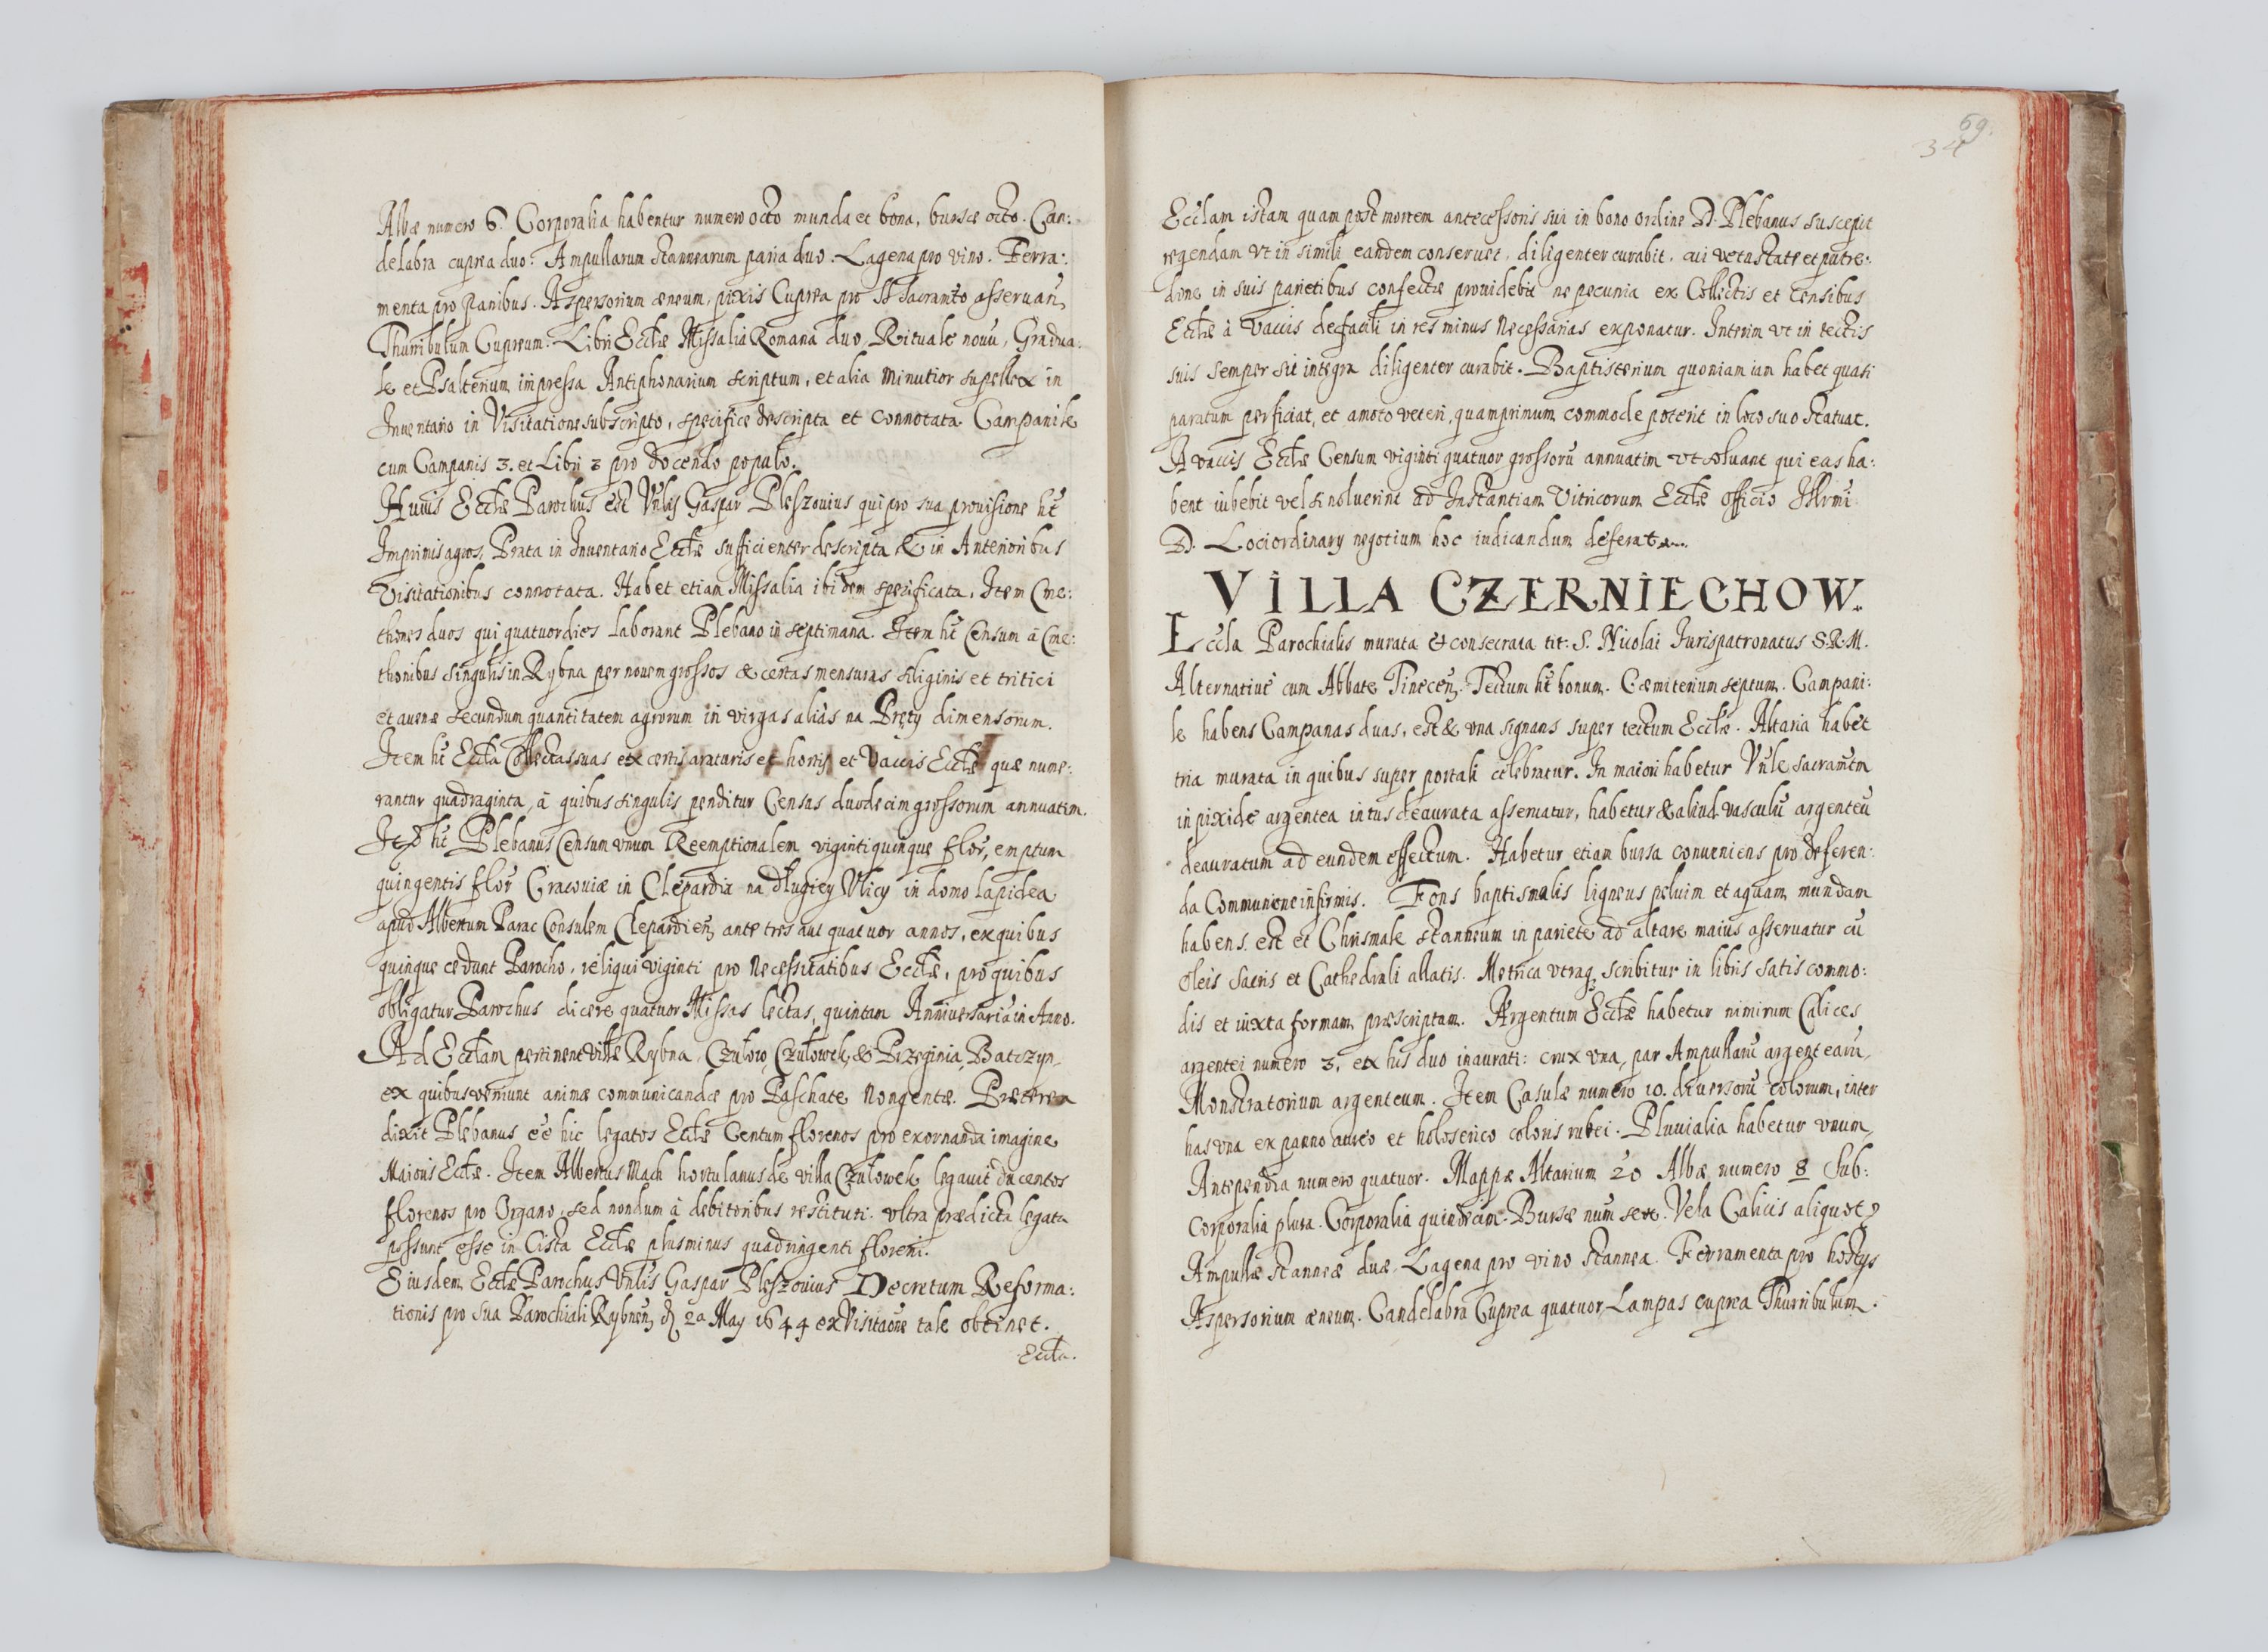 Albæ numero 6. Corporalia habentur numero octo munda et bona, bursæ octo. Can:
delabra cuprea duo: Ampullarum stannearum paria duo. Lagena pro vino. Ferra:
menta pro panibus. Aspersorium æneum, pixis Cuprea pro SS Sacramto asseruan,
Thurribulum Cupreum. Libri Ecctæ Missalia Romana duo, Rituale nouu, Gradua:
le et Psalterium impressa Antiphonarium scriptum, et alia minutior supellex in
Inuentario in Visitatione subscripto, specifice descripta et connotata Campanile
cum Campanis 3. et Libri 3 pro docendo populo.
Huius Ecctæ Parochus est Vnlis Gaspar Pleszouius qui pro sua prouisione ht
Imprimis agros, Prata in Inuentario Ecctæ sufficienter descripta & in Anterioribus
Visitationibus connotata. Habet etiam Missalia ibidem specificata. Item Cme:
thones duos qui quatuor dies laborant Plebano in septimana. Item ht Censum à Cme:
thonibus singulis in Rybna per nouem grossos & certas mensuras siliginis et tritici
et auenæ secundum quantitatem agrorum in virgas aliàs na Pręty dimensorum.
Item ht Eccta Collectas suas ex certis araturis et hortis et Vaccis Ecctæ quæ nume:
rantur quadraginta, à quibus singulis penditur Censas duodecim grossorum annuatim.
Ite ht Plebanus Censum vnum Reemptionalem viginti quinque flor, emptum
quingentis flor Cracouiæ in Clepardia na długiey Vlicy in domo lapidea
apud Albertum Parac Consulem Clepardien, ante tres aut quatuor annos, ex quibus
quinque cedunt Parocho, reliqui viginti pro necessitatibus Ecctæ, pro quibus
obligatur Parochus dicere quatuor Missas lectas, quintam Anniuersaria in Anno.
Ad Ecctam pertinent villæ Rybna, Czułow, Czułowek, & Przeginia, Batczyn
ex quibus veniunt animæ communicandæ pro Paschate Nongentæ. Præterea
dixit Plebanus eē hic legatos Ecctæ Centum florenos pro exornanda imagine
Maioris Ecctæ. Item Albertus Mach hortulanus de villa Czułowek legauit ducentos
florenos pro Organo, sed nondum à debitoribus restituti. vltra prædicta legata
possunt esse in Cista Ecctæ plus minus quadringenti floreni.
Eiusdem Ecctæ Parochus Vnlis Gaspar Pleszouius Decretum Reforma:
tionis pro sua Parochiali Rybnen, d 2a May 1644 ex Visitaõne tale obtinet.
Eccta.
69.
34
Ecctam istam quam post mortem antecessoris sui in bono ordine D. Plebanus suscepit
regendam vt in simili eandem conseruet, diligenter curabit, cui vetustate et putre:
dine in suis parietibus confectæ prouidebit ne pecunia ex Collectis et Censibus
Ecctæ à Vaccis de facili in res minus necessarias exponatur. Interim vt in tectis
suis semper sit integra diligenter curabit. Baptisterium quoniam iam habet quasi
paratum perficiat, et amoto veteri, quamprimum commode poterit in loco suo statuat.
A vaccis Ecctæ Censum viginti quatuor grossorū annuatim vt soluant qui eas ha:
bent iubebit vel si noluerint ad Instantiam Vitricorum Ecctæ officio Illrmi
D. Loci ordinary negotium hoc iudicandum deferat.
VILLA CZERNIECHOW.
Eccla Parochialis murata & consecrata tit: S. Nicolai Iurispatronatus S.R.M.
Alternatiue cum Abbate Tinecen. Tectum ht bonum. Cæmiterium septum. Campani:
le habens Campanas duas, est & vna signans super tectum Ecctæ. Altaria habet
tria murata in quibus super portati celebratur. In maiori habetur Vnle Sacramtm
in pixide argentea intus deaurata asseruatur, habetur & aliud vasculū argenteū
deauratum ad eundem effectum. Habetur etiam bursa conueniens pro deferen:
da Communione infirmis. Fons baptismalis ligneus peluim et aquam mundam
habens. est et Chrismale stanneum in pariete ad altare maius asseruatur cū
oleis sacris et Cathedrali allatis. Metrica vtraq, scribitur in libris satis commo:
dis et iuxta formam præscriptam. Argentum Ecctæ habetur nimirum Calices
argentei numero 3. ex his duo inaurati: crux vna, par Ampullarū argentearū,
Monstratorium argenteum. Item Casulæ numero 10. diuersorū colorum, inter
has vna ex panno aureo et holoserico coloris rubei. Pluuialia habetur vnum,
Antependia numero quatuor. Mappæ Altarium 20 Albæ numero 8 Sub:
Corporalia plura. Corporalia quindecim. Bursæ num sex. Vela Calicis aliquot,
Ampullæ stanneæ duæ. Lagena pro vino stannea. Ferramenta pro hostys
Aspersorium æneum. Candelabra Cuprea quatuor, Lampas cuprea Thurribulum.